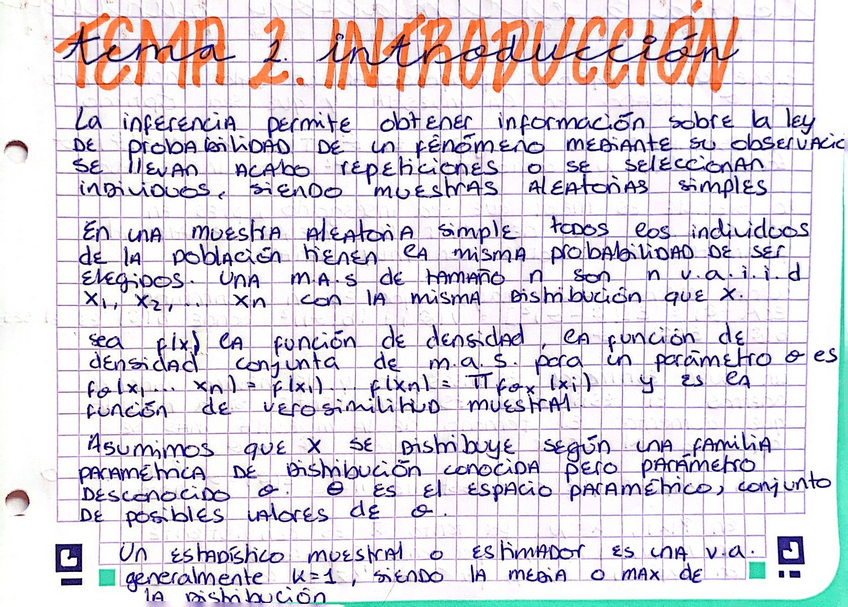 TEMA 2. INTRODUCCIÓN
tema 2. introducción
La inferencia permite obtener información sobre la ley
de probabilidad de un fenómeno mediante su observacic
se llevan acabo repeticiones o se seleccionan
individuos, siendo muestras aleatorias simples
En una muestra aleatoria simple todos los individuos
de la población tienen la misma probabilidad de ser
elegidos. Una m.a.s de tamaño n son n v.a.i.i.d
x1, x2, ... xn con la misma distribución que x.
sea f(x) la función de densidad, la función de
densidad conjunta de m.a.s. para un parámetro θ es
fθ(x1... xn) = f(x1)... f(xn) = Π fθx (xi) y es la
función de verosimilitud muestral
Asumimos que x se distribuye según una familia
paramétrica de distribución conocida pero parámetro
desconocido θ. Θ es el espacio paramétrico, conjunto
de posibles valores de θ.
Un estadístico muestral o estimador es una v.a.
generalmente k=1, siendo la media o max de
la distribución